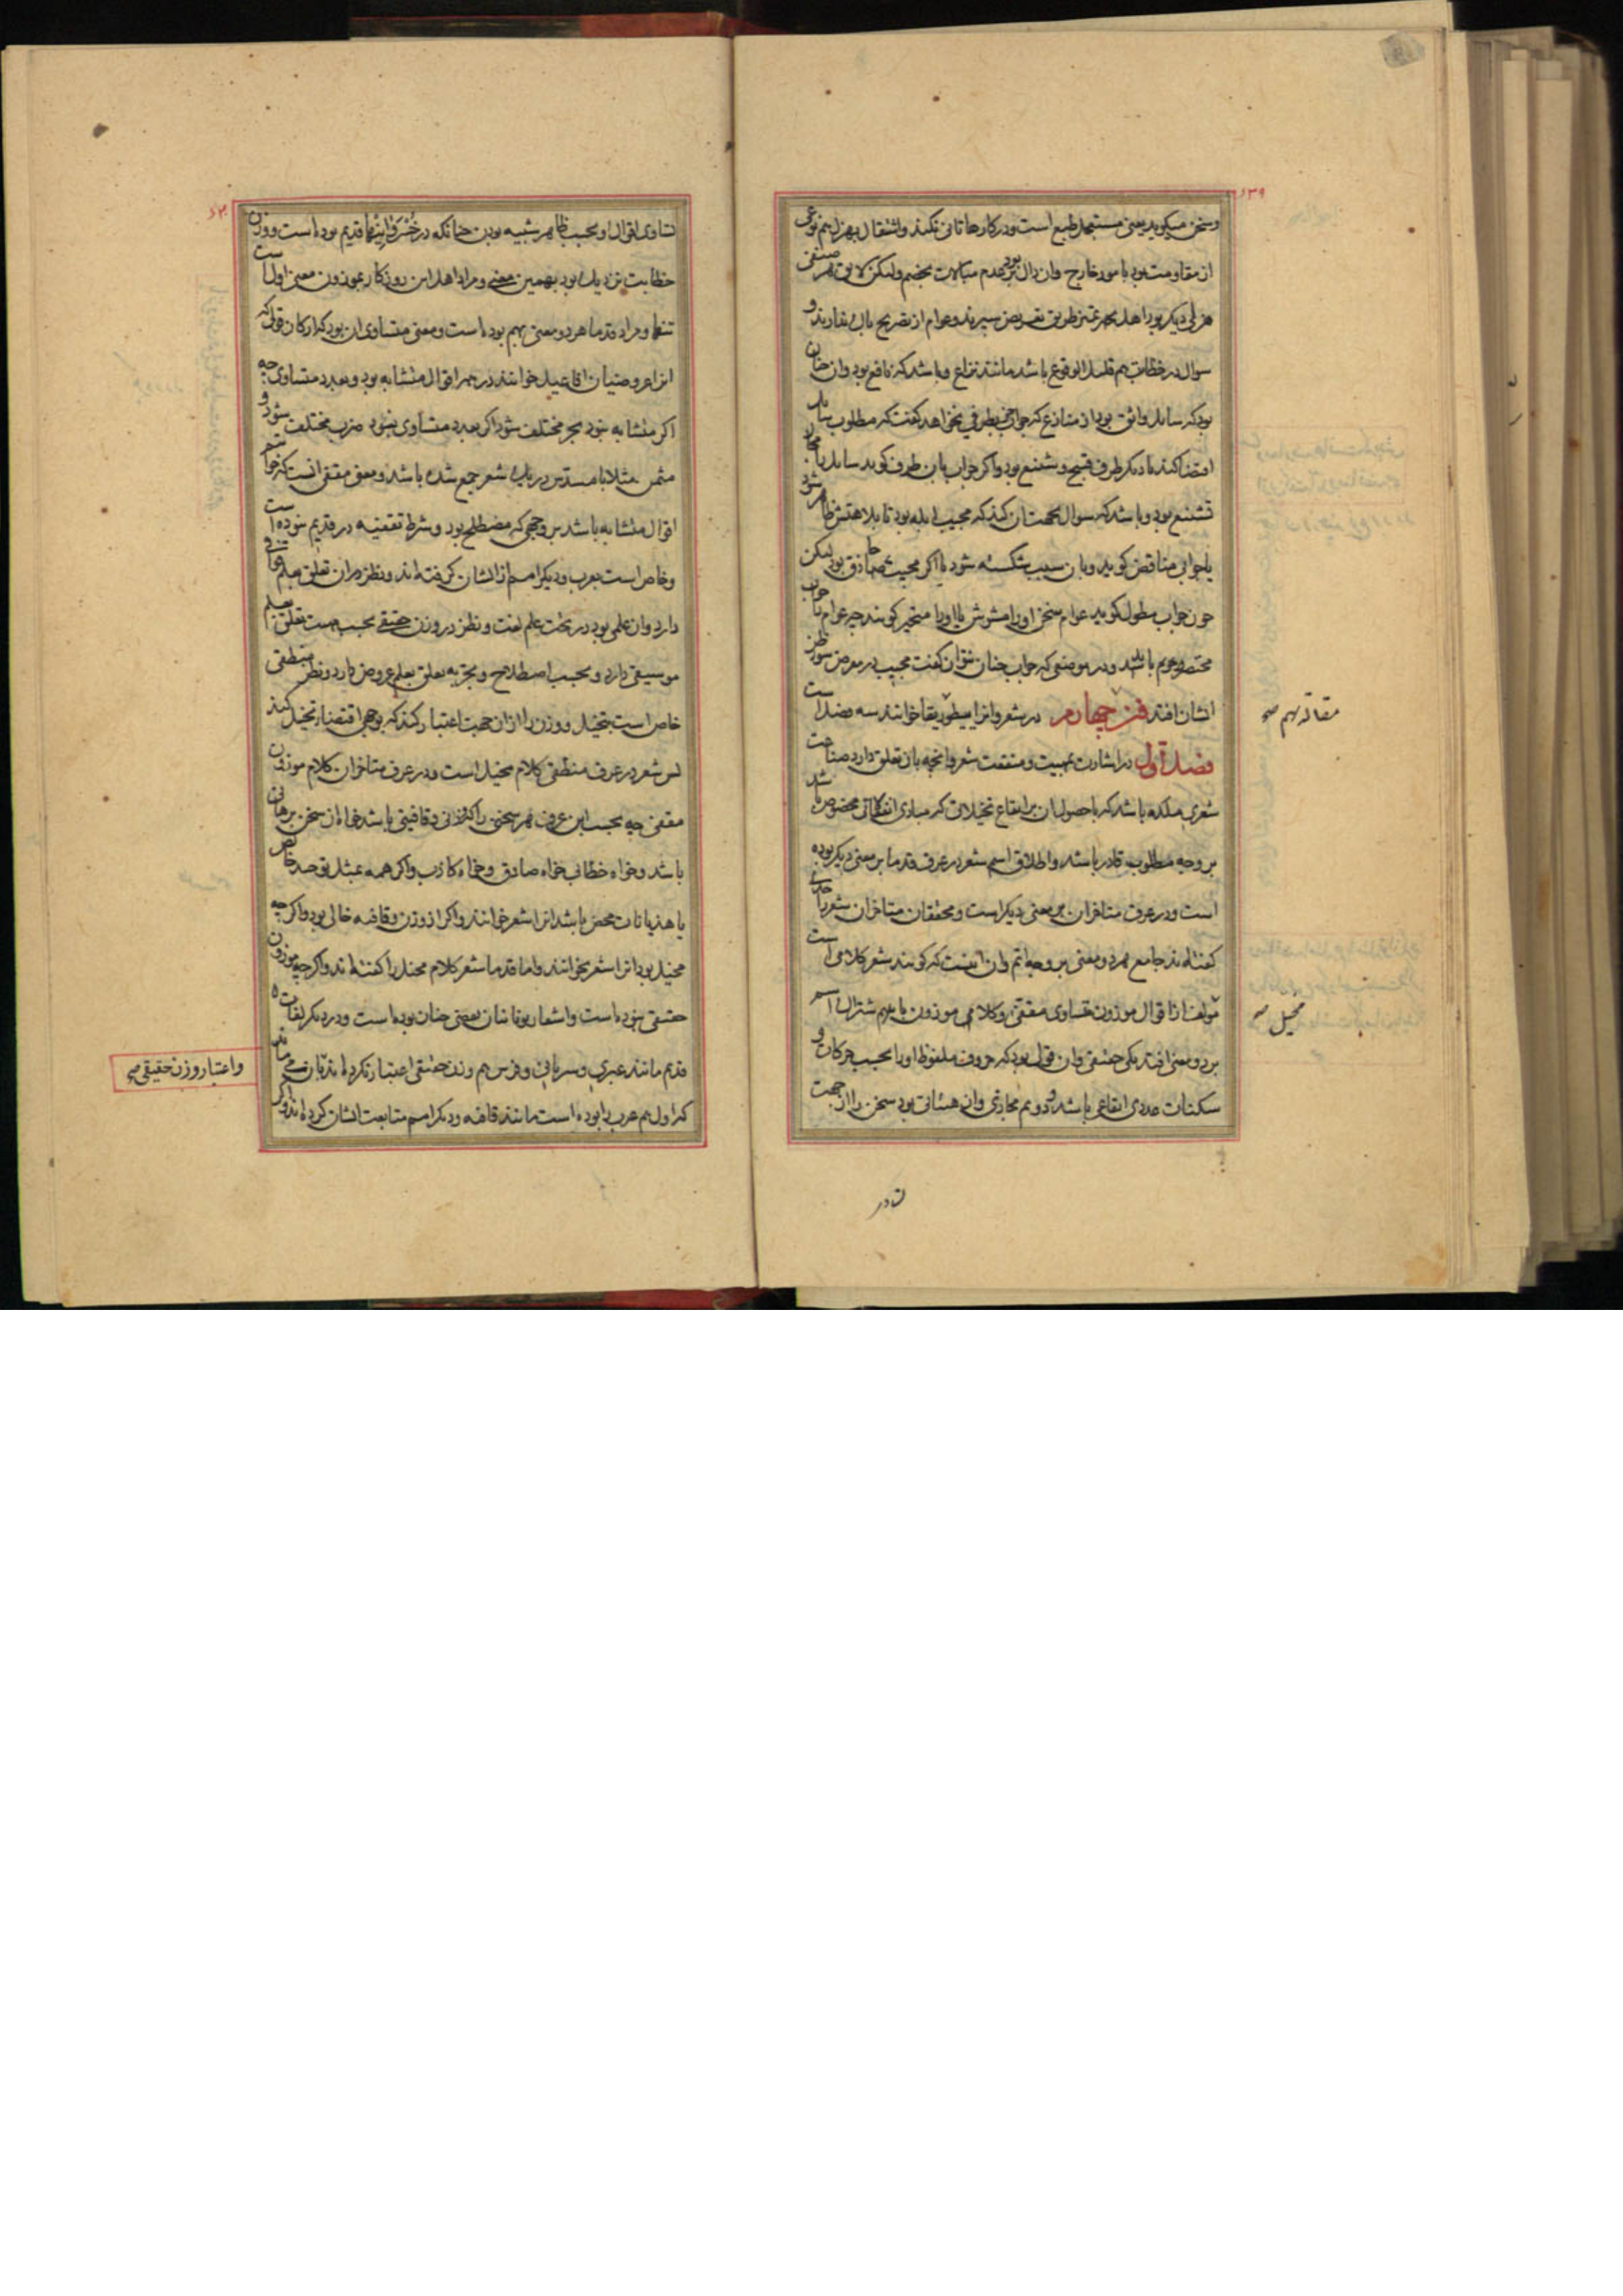 ۱۳۹
وسخن میکوید یعنی مستعجل طبع است ودر کارها تانی نکند واشتغال بهزل هم نوعی
از مقاومت بود بامور خارج وان دال بود بر عدم مبالات بخصم ولیکن لایق هر صنفی
هزلی دیکر بود اهل تمیز طریق تعریض سپرند وعوام از تصریح باک ندارند و
سوال در خطابت هم قلیل الوقوع باشد مانند نزاع وباشد که نافع بود وان چنان
بود که سایل واثق بود از منازع که جواب بطرفی نخواهد کفت که مطلوب سایل
اقتضا کند یا دیکر طرف قبیح وشنیع بود واکر جواب بان طرف کوید سایل را مجال
تشنیع بود وباشد که سوال بجهت ان کند که مجیب ابله بود تا بلاهتش ظاهر شود
یا جوابی مناقض کوید وبان سبب شکسته شود یا اکر مجیب حاذق بود لیکن
چون جواب مطول کوید عوام سخن اورا مشوش یا اورا متحیر کویند چه عوام را جواب
مختصر مفهوم باشد ودر موضعی که جواب چنان نتوان کفت مجیب در معرض سوء ظن
ایشان افتد فن چهارم در شعر وانرا بیطوریقا خوانند سه فصل است
مقاله نهم صح
فصل اول در اشارت بماهیت ومنفعت شعر وانچه بان تعلق دارد صناعت
شعری ملکه باشد که با حصول ان بر ایقاع تخیلاتی که مبادی انفعالاتی مخصوص باشد
بر وجه مطلوب قادر باشد واطلاق اسم شعر در عرف قدما بر معنی دیکر بوده
است ودر عرف متاخران بر معنی دیکر است ومحققان متاخران شعر را حدی
کفته‌اند جامع هر دو معنی بر وجه اتم وان اینست که کویند شعر کلامی است
مخیل صح
مولف از اقوال موزون متساوی مقفی وکلامی موزون باشد باشتراک اسم
بر دو معنی افتد یکی حقیقی وان قولی بود که حروف ملفوظ اورا بحسب حرکات و
سکنات عددی ایقاعی باشد ودوم مجازی وان هیئاتی بود سخن را از جهت
تساوی
۱۴۰
تساوی اقوال او بحسب ظاهر شبیه بوزن چنانکه در خسروانیها قدیم بوده است ووزن
خطابت نزدیک بود بهمین معنی ومراد اهل این روزکار بموزون معنی اول است
تنها ومراد قدما هر دو معنی بهم بوده است ومعنی متساوی ان بود که ارکان قول که
انرا عروضیان افاعیل خوانند در همه اقوال متشابه بود وبعدد متساوی چه
اکر متشابه نبود بحر مختلف شود اکر بعدد متساوی نبود ضرب مختلف شود و
مثمن مثلا با مسدس در یک شعر جمع شده باشد ومعنی مقفی انست که خواتیم
اقوال متشابه باشد بر وجهی که مصطلح بود وشرط تقفیه در قدیم نبوده است
وخاص است بعرب ودیکر امم از ایشان کرفته‌اند ونظر در ان تعلق بعلم قوافی
دارد وان علمی بود در تحت علم لغت ونظر در وزن حقیقی بحسب ماهیت تعلق بعلم
موسیقی دارد وبحسب اصطلاح وتجربه تعلق بعلم عروض دارد ونظر منطقی
خاص است بتخیل ووزن را از ان جهت اعتبار کند که بوجهی اقتضاء تخیل کند
پس شعر در عرف منطقی کلام مخیل است ودر عرف متاخران کلام موزون
مقفی چه بحسب این عرف هر سخنی را که وزنی وقافیتی باشد خواه ان سخن برهانی
باشد وخواه خطابی خواه صادق وخواه کاذب واکر همه بمثل توحید خالص
یا هذیانات محض باشد انرا شعر خوانند واکر از وزن وقافیه خالی بود واکرچه
مخیل بود انرا شعر نخوانند واما قدما شعر کلام مخیل را کفته‌اند واکرچه موزون
حقیقی نبوده است واشعار یونانیان بعضی چنان بوده است ودر دیکر لغات
قدیم مانند عبری وسریانی وفرس هم وزن حقیقی اعتبار نکرده‌اند
واعتبار وزن حقیقی صح
که اول هم عرب را بوده است مانند قافیه ودیکر امم متابعت ایشان کرده‌اند واکر